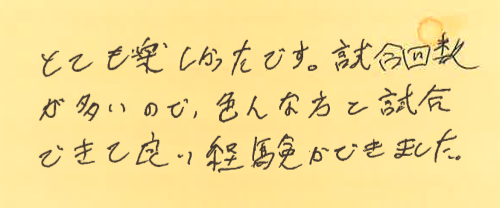 とても楽しかったです。試合回数
が多いので、色んな方と試合
できて良い経験ができました。